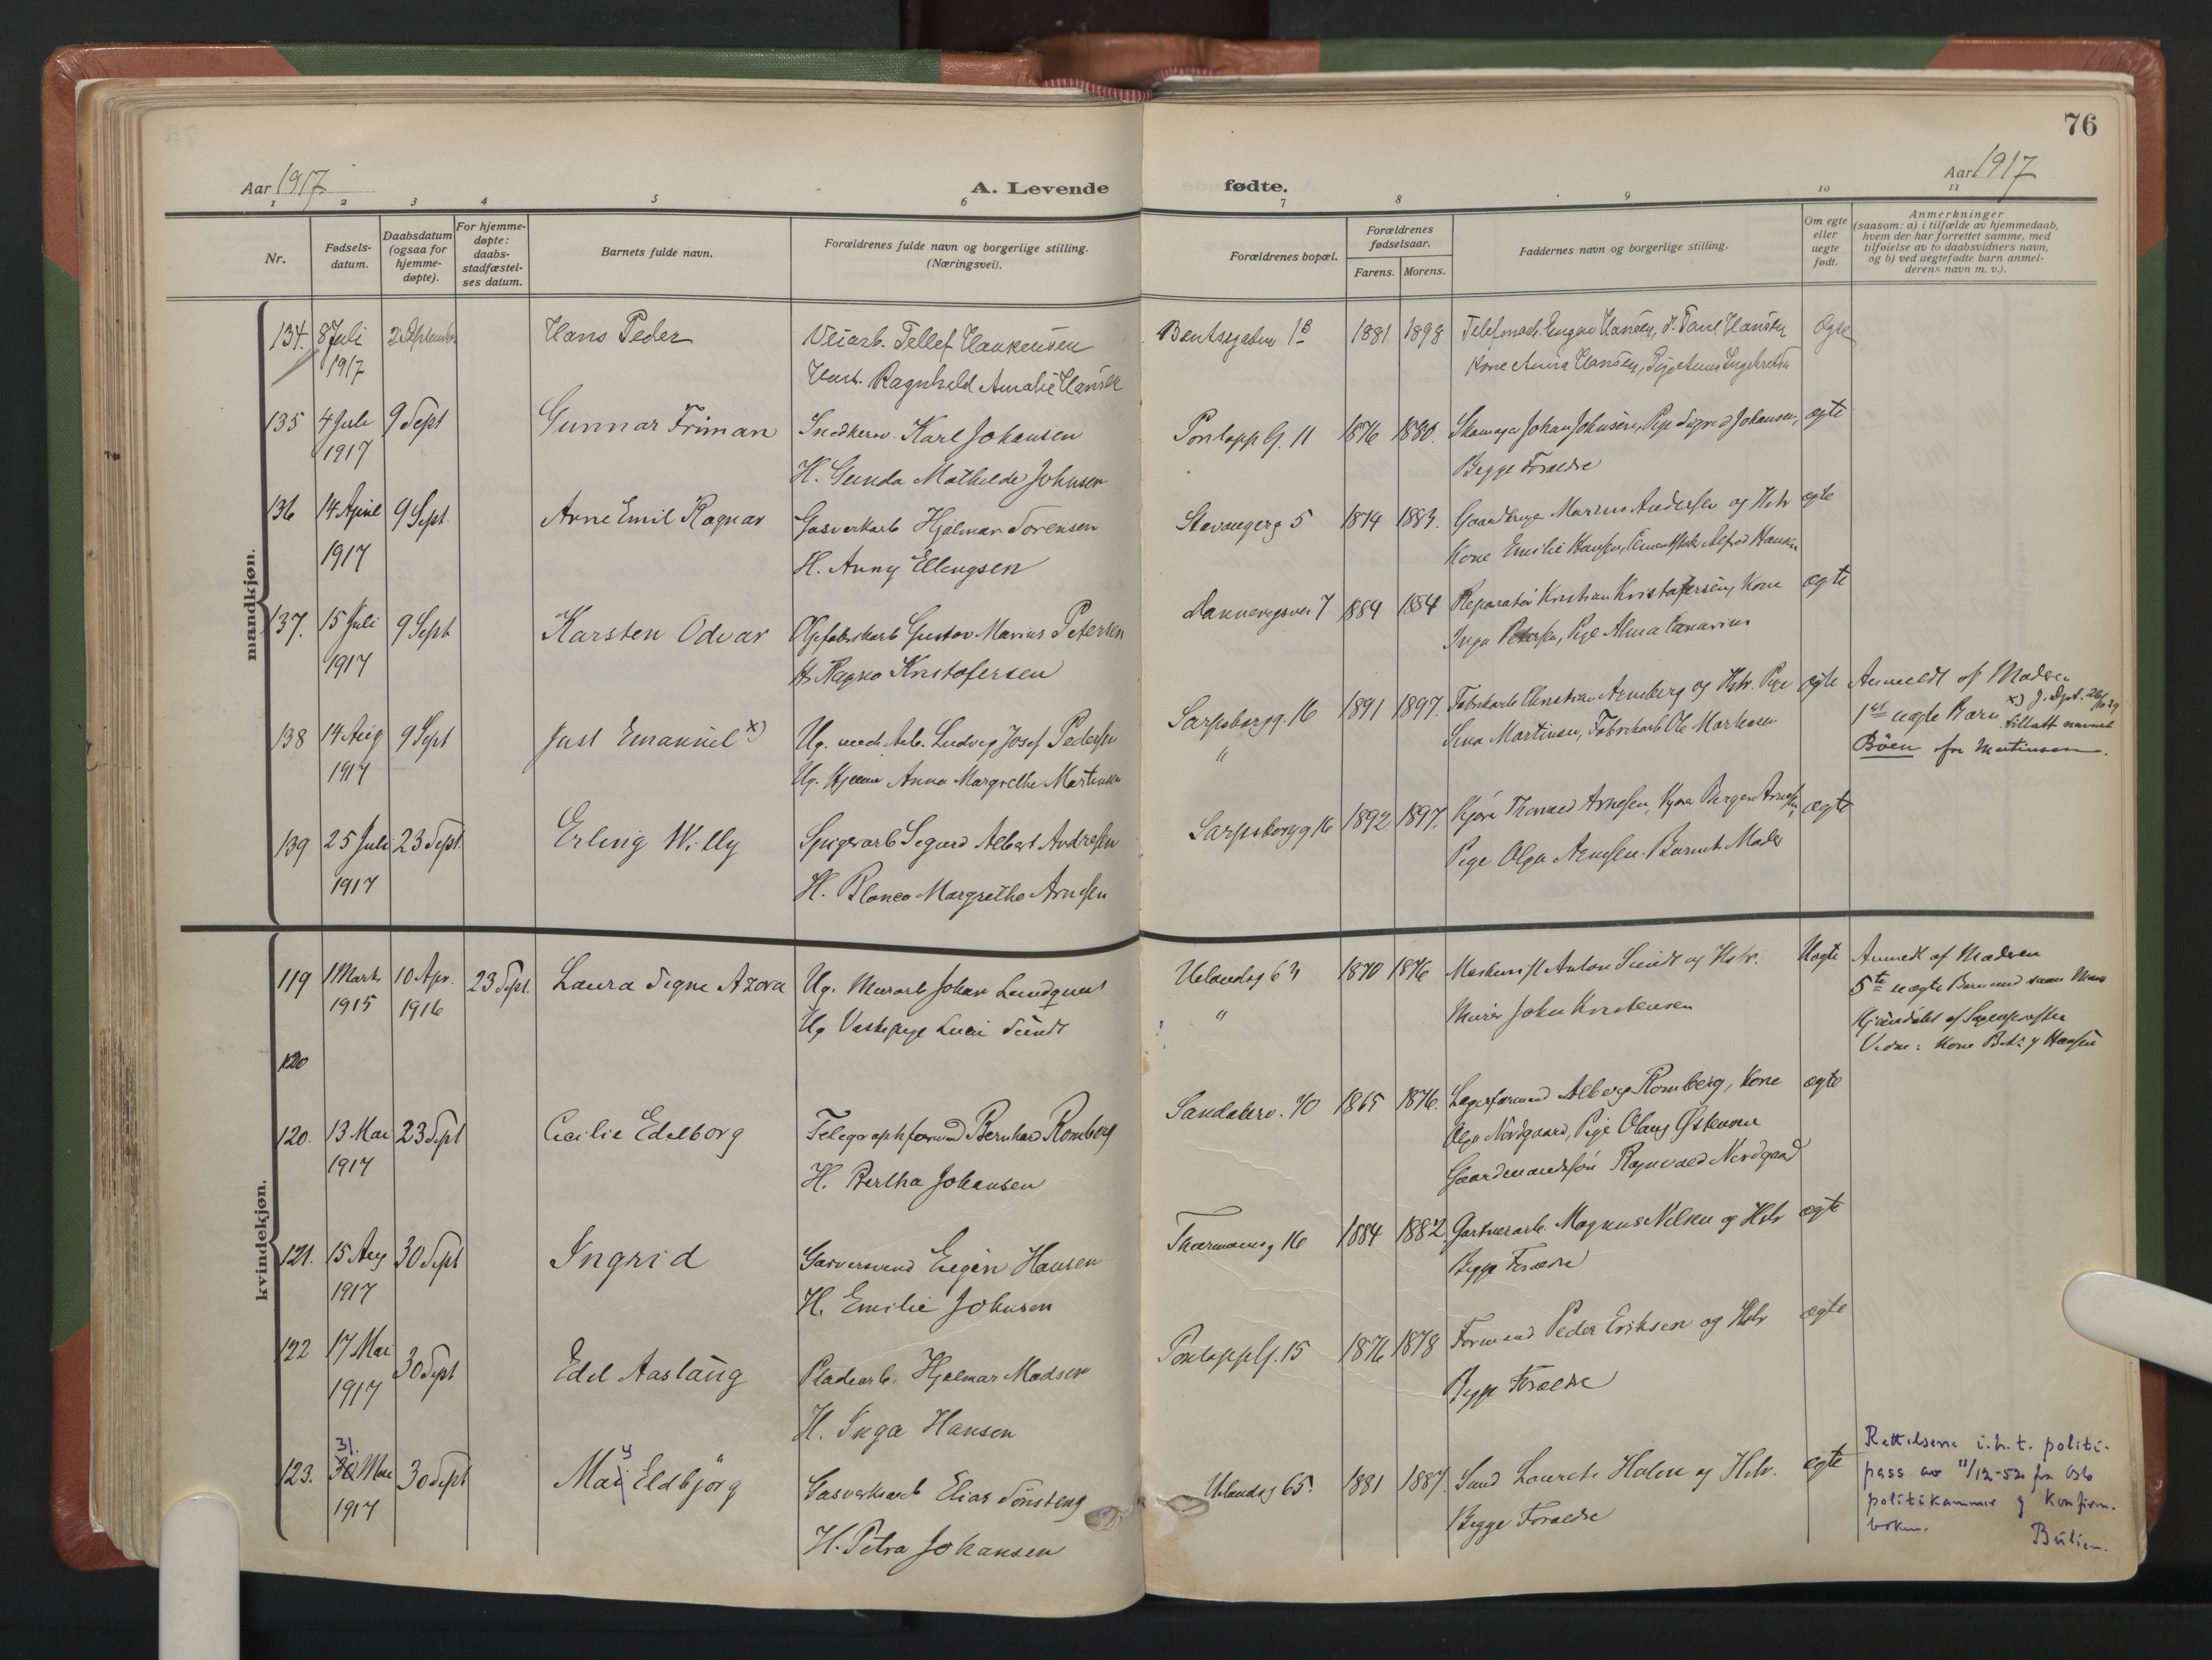 76
Aar 1917
A. Levende
fødte.
Aar 1917
1 2 3 4 5 6 7 8 9 10 11
Nr.
Fødsels-
datum.
Daabsdatum
(ogsaa for
hjemme-
døpte).
For hjemme-
døpte:
daabs-
stadfæstel-
ses datum.
Barnets fulde navn.
Forældrenes fulde navn og borgerlige stilling.
(Næringsvei).
Forældrenes bopæl.
Forældrenes
fødselsaar.
Farens. Morens.
Faddernes navn og borgerlige stilling.
Om egte
eller
uegte
født.
Anmerkninger
(saasom: a) i tilfælde av hjemmedaab,
hvem der har forrettet samme, med
tilføielse av to daabsvidners navn,
og b) ved uegtefødte barn anmel-
derens navn m. v.).
mandkjøn.
134. 8 Juli 2 September Hans Peder Veiarb. Tellef Haukensen Bentsegaten 1B 1881 1898 Telefonarb. Eugen Hansen, Paul Hansen Egte
1917 Ragnhild Amalie Hansen Kone Anna Hansen, Pige
135 4 Juli 9 Sept Gunnar Friman Snedkersv. Karl Johansen Pontopp G. 11 1876 1880. Johan Johnsen, Pige Sigrid Johansen, egte
1917 H. Gunda Mathilde Johnsen Begge Forældre
136 14 April 9 Sept. Arne Emil Ragnar Gasverkarb Hjalmar Sorensen Stavangerg 5 1874 1883. Marius Andersen og Hstr egte
1917 H. Anny Ellengsen Kone Emilie Hansen, Alfred Hansen
137. 15 Juli 9 Sept Karsten Odvar Gustav Marius Petersen Dannevigsvei 7 1884 1884 Reparatør Kristian Kristofersen, Kone egte
1917 H. Kristofersen Inga Petersen, Pige Alma
138 14 Aug 9 Sept Just Emanuel x) Ug. med Arb. Ludvig Josef Pedersen Sarpsborgg. 16 1891 1897. Fabrikarb Christian Arneberg og Hstr. Pige egte Anmeldt af Madsen
1917 Ug. Hjem Anna Margrethe Martinsen " Martinsen, Fabrikarb Ole Martinsen 1ste uegte Barn
x) J. Dpt. 26/10 39
tillatt navnet
Böen for Martinsen.
139 25 Juli 23 Sept. Erling Willy Spigerarb Sigurd Albert Andresen Sarpsborgg 16 1892 1897. Kjører Thorvald Arnesen, Kjører Birger Arnesen, egte
1917 H. Blanca Margrethe Arnesen Pige Olga Arnesen. Barnets Moder
kvindekjøn.
119 1 Marts 10 Apr. 23 Sept. Laura Signe Azora Ug. Murarb Johan Lundquist Uelandsg 63 1870 1876 Maskinist Anton Sundt og Hstr. Uegte Anmeldt af Madsen
1915 1916 Ug Vaskepige Sundt " Murer John Kristensen 5te uegte Barn med samme Mand
Hjemdøbt af Sogneprest
120 Vidne: Kone
120. 13 Mai 23 Sept Cecilie Edelborg Telegraphformand Bernhard Romberg Sandakerv. 70 1865 1876. Lagerformand Alberg Romberg, Kone egte
1917 H. Bertha Johansen Olga Nordgaard, Pige Olaug Østensen
Gaardmandssøn Ragnvald Nordgaard
121. 15 Aug 30 Sept Ingrid Gasverksarb Eugen Hansen Thurmannsg 16 1884 1882 Gartnerarb. Magnus Nilsen og Hstr egte
1917 H. Emilie Johnsen Begge Forældre
122 17 Mai 30 Sept Edel Aaslaug Pladearb. Hjalmar Madsen Pontopp G. 15 1876 1878 Formand Peder Eriksen og Hstr egte
1917 H. Inga Hansen Begge Forældre
31.
123. 30 Mai 30 Sept Mai y Eldbjørg Gasverksarb Elias Tønsberg Uelandsg 65. 1881 1887. Laurets Holm og Hstr. egte
1917 H. Petra Johansen Begge Forældre
Rettelsene i.h.t. politi-
pass av 11/12-52 fra Oslo
politikammer og konfirm.
boken.